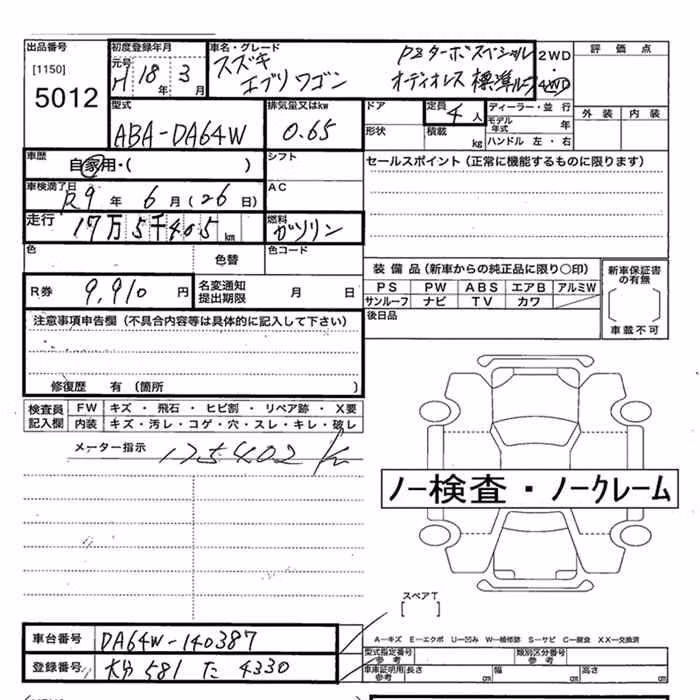 出品番号
[1150]
5012
初度登録年月
元号
H 18年 3月
車名・グレード
スズキ
エブリワゴン
PZターボスペシャル
オーディオレス 標準ルーフ
2WD
4WD
評価点
外装 内装
型式
ABA-DA64W
排気量又はkw
0.65
ドア
形状
定員
4人
積載
kg
ディーラー・並行
モデル年式
年
ハンドル 左・右
車歴
自家用・( )
シフト
セールスポイント(正常に機能するものに限ります)
車検満了日
R9年 6月(26日)
AC
走行
17万5千405km
燃料
ガソリン
色
色替
色コード
R券
9,910円
名変通知
提出期限
月 日
装備品(新車からの純正品に限り○印)
PS PW ABS エアB アルミW
サンルーフ ナビ TV カワ
後日品
新車保証書
の有無
車載不可
注意事項申告欄(不具合内容等は具体的に記入して下さい)
修復歴 有(箇所 )
検査員
記入欄
FW キズ・飛石・ヒビ割・リペア跡・X要
内装 キズ・汚レ・コゲ・穴・スレ・キレ・破レ
メーター指示
175402 km
ノー検査・ノークレーム
スペアT
[ ]
A-キズ E-エクボ U-凹み W-補修跡 S-サビ C-腐食 XX-交換済
車台番号
DA64W-140387
登録番号
大分 581 た 4330
型式指定番号
参考
類別区分番号
参考
車車証明用
参考
長さ cm 幅 cm 高さ cm